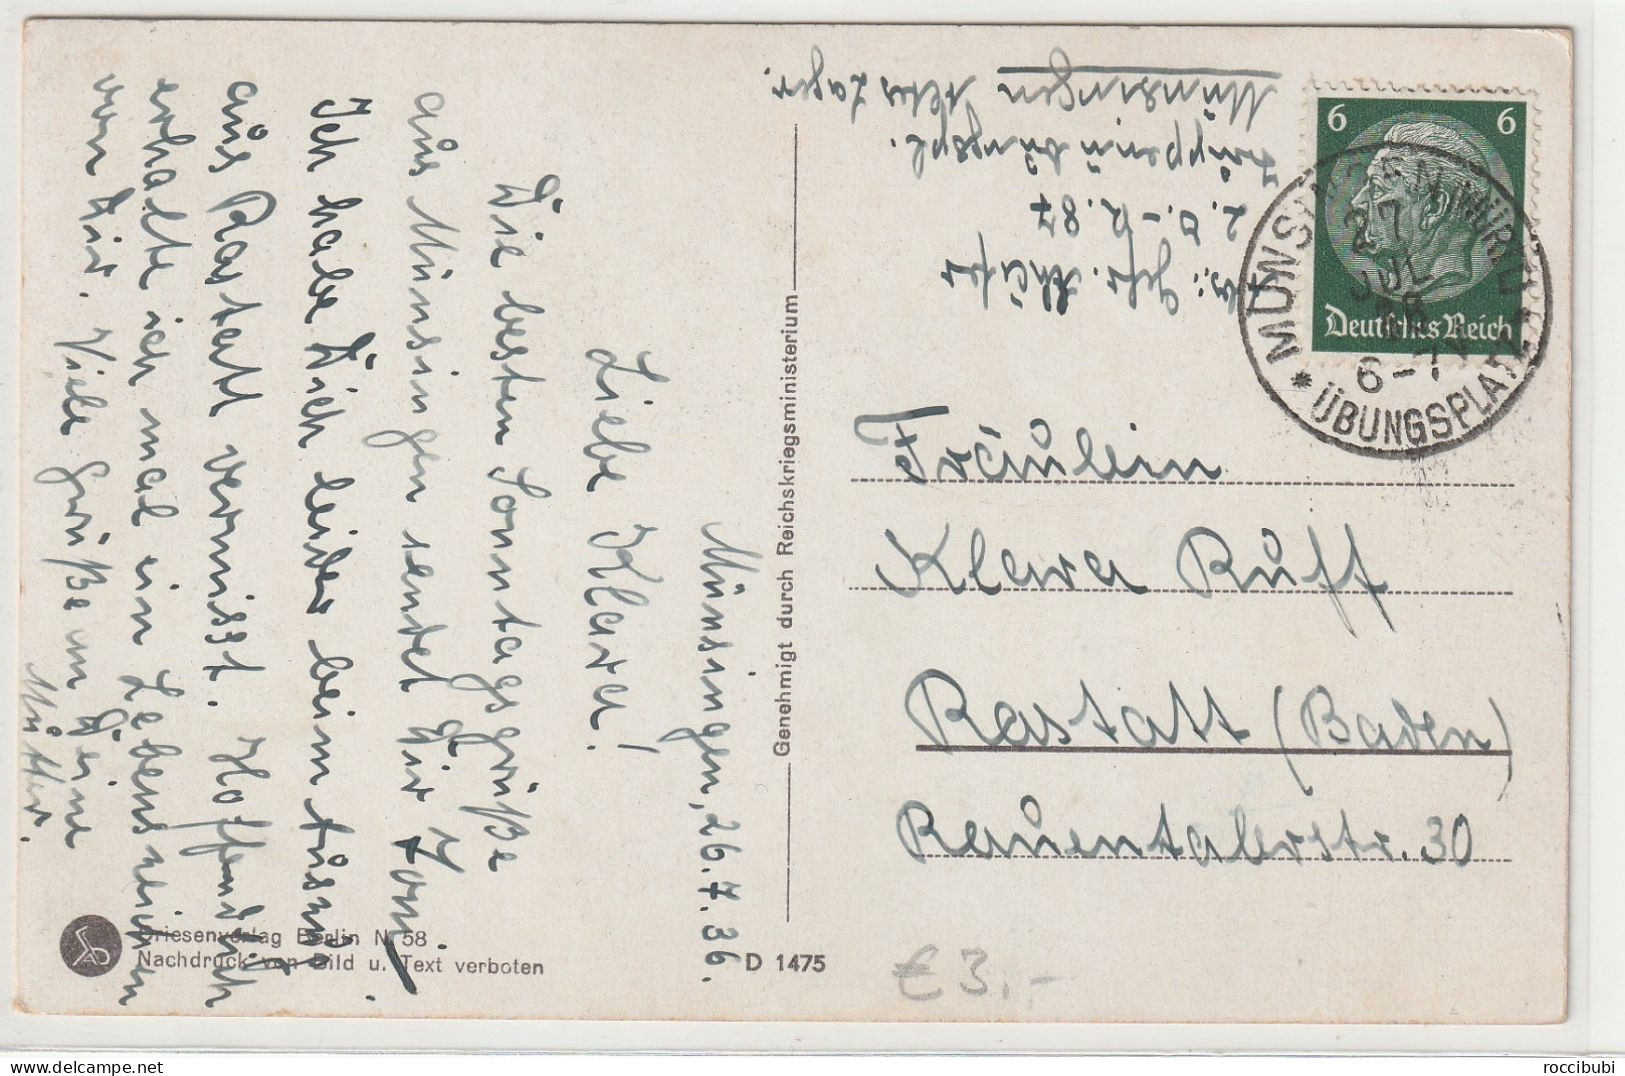 Münsingen, 26.7.36.
Liebe Klara!
Die besten Sonntagsgrüße
aus Münsingen sendet Dir
Ich habe Dich leider beim
aus Rastatt vermisst. Hoffendlich
erhalte ich mal ein Lebenszeichen
von Dir. Viele Grüße an Deine
Mutter.
Abs.: Gefr.
Truppenübungspl.
Münsingen Altes Lager.
6 6
Deutsches Reich
MÜNSINGEN (WÜRTT)
27
JUL
36
6-7
* ÜBUNGSPLATZ
Fräulein
Klara Ruff
Rastatt (Baden)
Rauentalerstr. 30
Genehmigt durch Reichskriegsministerium
Driesenverlag Berlin N. 58
Nachdruck von Bild u. Text verboten
D 1475
€ 3,-
roccibubi